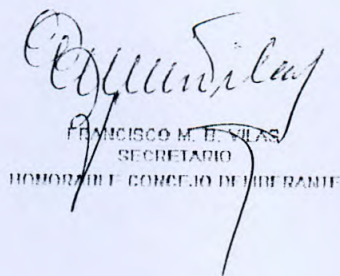 FRANCISCO M. B. VILAS
SECRETARIO
HONORABLE CONCEJO DELIBERANTE